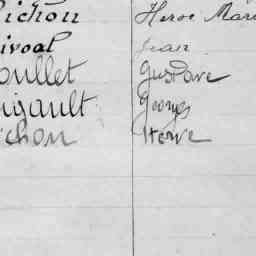 ichon Herve Marie
ivoal Jean
oullet Gustave
igault Georges
chon Herve